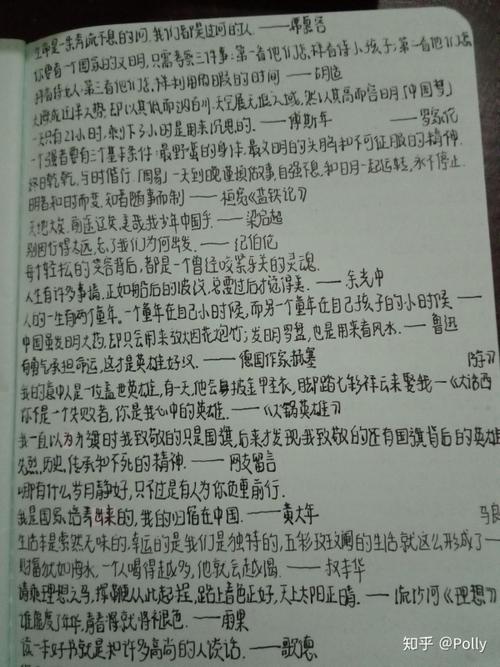 生命是一条奔流不息的河,我们都是过河的人。——席慕容
你要看一个国家的文明,只需考察三件事:第一看他们怎样待小孩子;第二看他们怎
样看待女人;第三看他们怎样利用闲暇的时间——胡适
大海成汪洋大势,却以其低而纳百川,天空展无垠之域,然以其高而含日月「中国梦」
一天只有21小时,剩下3小时是用来沉思的。——傅斯年 ——罗家伦
一个强者要有三个基本条件:最野蛮的身体、最文明的头脑和不可征服的精神
终日乾乾,与时偕行「周易」一天到晚谨慎做事,自强不息,和日月一起运转,永不停止
明者和时而变,知者随事而制——桓宽《盐铁论》
天地大矣,前途辽矣,美哉我少年中国乎。——梁启超
别因行得太远,忘了我们为何出发。——纪伯伦
每个轻松的笑容背后,都是一个曾经咬紧牙关的灵魂
人生有许多事情,正如船后的波纹,总要过后才觉得美。——余光中
人的一生有两个童年。一个童年在自己小时候,而另一个童年在自己孩子的小时候——
中国虽发明火药,却只会用来放烟花炮竹;发明罗盘,也是用来看风水。——鲁迅
有勇气承担命运,这才是英雄好汉。——德国作家赫塞 游》
我的意中人是一位盖世英雄,有一天他会身披金甲圣衣,脚踏七彩祥云来娶我——《大话西
你不是一个失败者,你是我心中的英雄。——《火锅英雄》
我一直以为升旗时我致敬的只是国旗,后来才发现,我致敬的还有国旗背后的英雄
先烈,历史,传承和不死的精神。——网友留言
哪有什么岁月静好,只不过是有人为你负重前行。
我是国家培养出来的,我的归宿在中国。——黄大年 马良
生活本是索然无味的,幸运的是我们是独特的,五彩斑斓的生活就这么形成了—
财富犹如海水,一个人喝得越多,他就会越渴。——叔本华
请乘理想之马,挥鞭从此起程,路上春色正好,天上太阳正晴。——流沙河《理想》
谁虚度了年华,青春将就将褪色。——雨果
读一本好书就是和许多高尚的人谈话。——歌德
知乎 @Polly